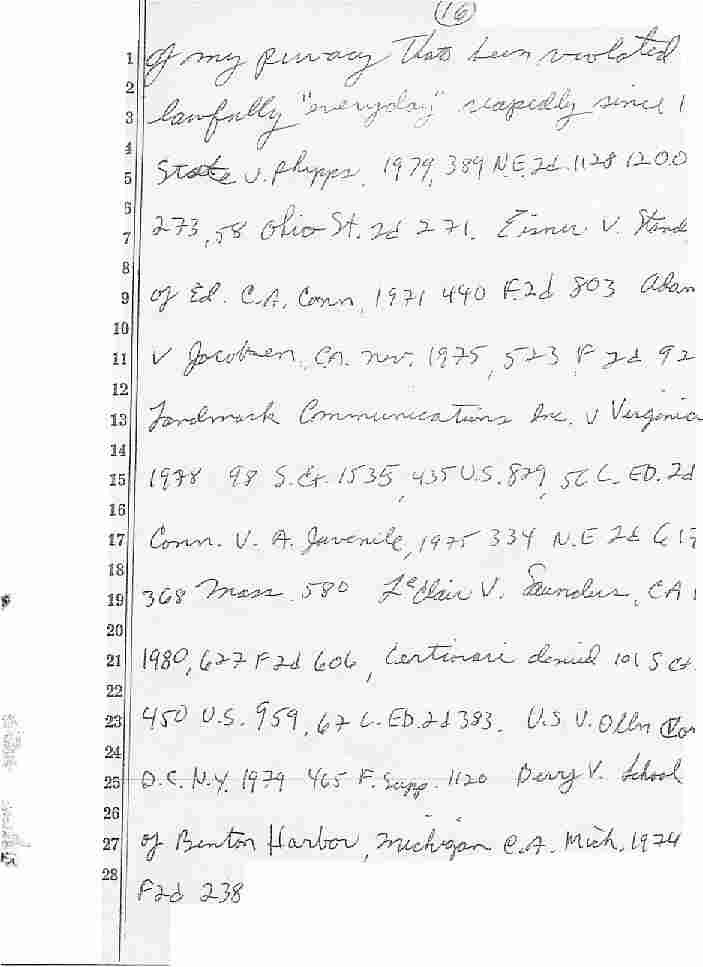 16
of my privacy that's been violated
lawfully "everyday" rapedly since
State v. Phipps, 1979, 389 N.E. 2d. 1128 12 O.O
273, 58 Ohio St. 2d 271. Eisner V. Stand
of Ed. C.A. Conn, 1971 440 F.2d 803 Adam
v Jacobsen, CA. nev. 1975, 523 F 2d 92
Landmark Communications Inc. v Virginia
1978 98 S.Ct. 1535, 435 U.S. 829, 56 L. ED. 2d
Comm. V. A. Juvenile, 1975 334 N.E 2d 617
368 Mass. 580 LeClair V. Saunders, CA
1980, 627 F 2d 606, Certiorari denied 101 S Ct.
450 U.S. 959, 67 L. ED. 2d 383. U.S V. Olin Cor
D.C. N.Y. 1979 465 F. Supp. 1120 Berry V. School
of Benton Harbor, Michigan C.A. Mich. 1974
F2d 238
1
2
3
4
5
6
7
8
9
10
11
12
13
14
15
16
17
18
19
20
21
22
23
24
25
26
27
28